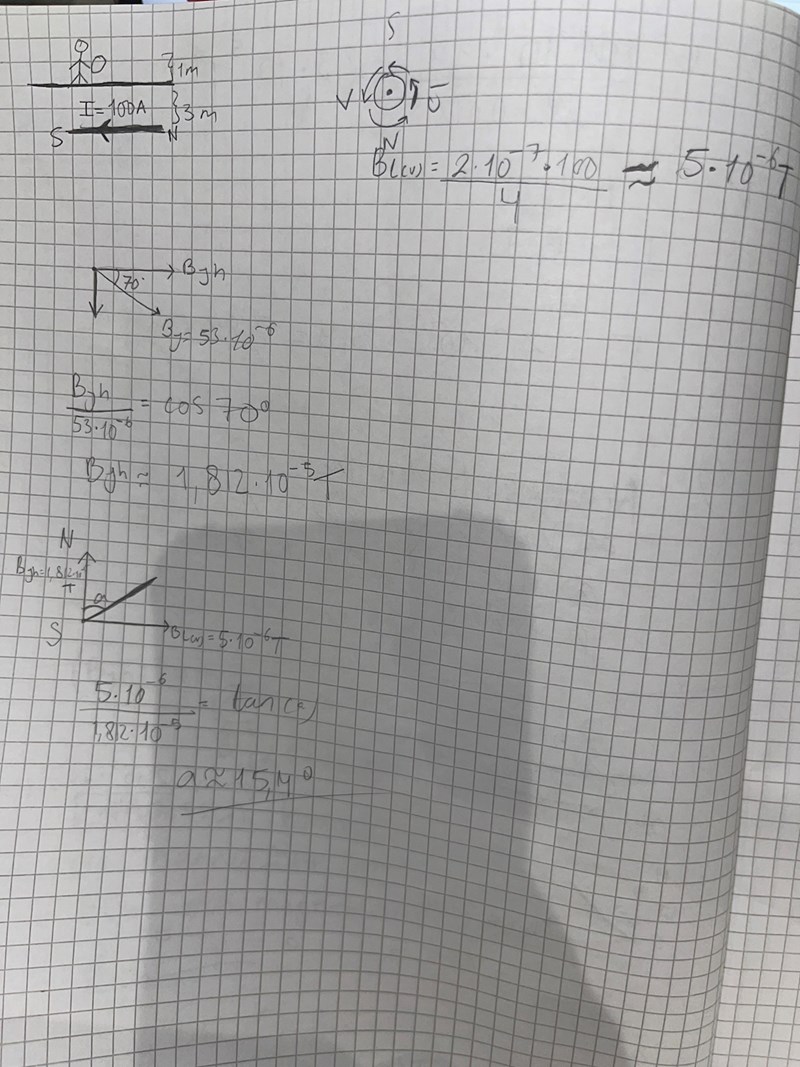 }1m
I=100A }3m
S N
S
V Ö
N
B(cv) = 2·10⁻⁷·100 / 4 ≈ 5·10⁻⁶T
Bjh
70°
Bj=53·10⁻⁶
Bjh / 53·10⁻⁶ = cos 70°
Bjh ≈ 1,82·10⁻⁵T
N
T
a
S B(cv)=5·10⁻⁶T
5·10⁻⁶ / 1,82·10⁻⁵ = tan(a)
a≈15,4°